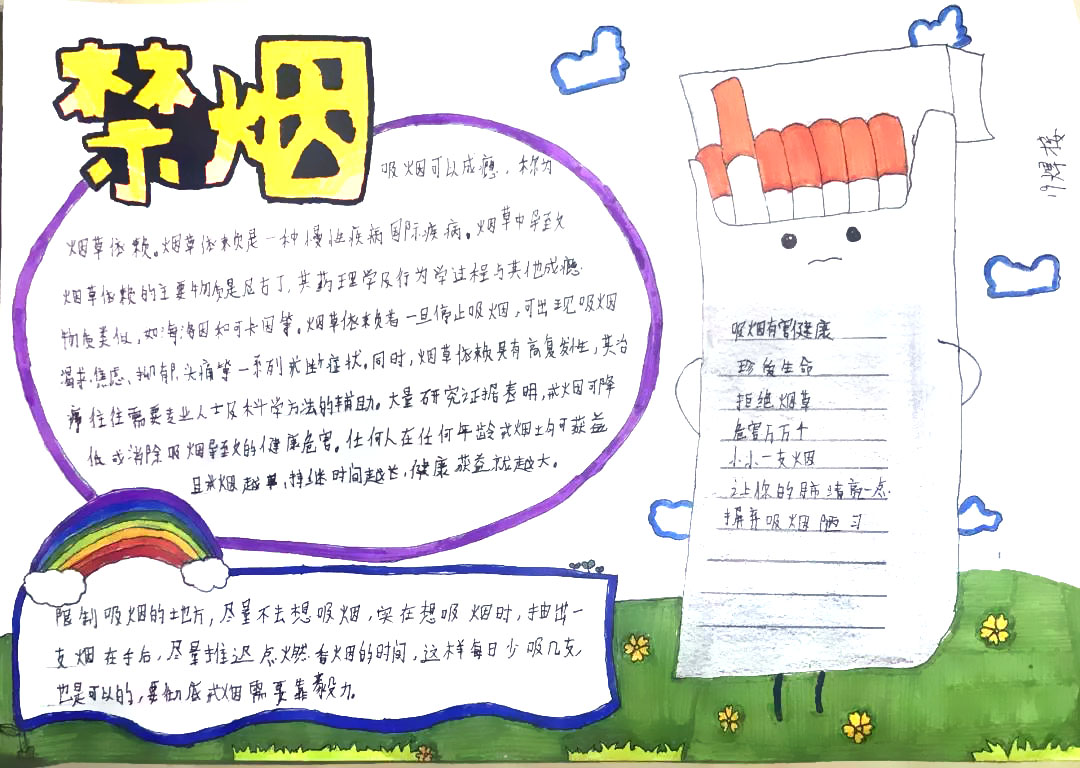 禁烟
吸烟可以成瘾，称为
烟草依赖。烟草依赖是一种慢性疾病国际疾病。烟草中导致
烟草依赖的主要物质是尼古丁，其药理学及行为学过程与其他成瘾
物质类似，如海洛因和可卡因等。烟草依赖者一旦停止吸烟，可出现吸烟
渴求、焦虑、抑郁、头痛等一系列戒断症状。同时，烟草依赖具有高复发性，其治
疗往往需要专业人士及科学方法的辅助。大量研究证据表明，戒烟可降
低或消除吸烟导致的健康危害。任何人在任何年龄戒烟均可获益
且戒烟越早，持续时间越长，健康获益就越大。
限制吸烟的地方，尽量不去想吸烟，实在想吸烟时，抽出一
支烟在手后，尽量推迟点燃香烟的时间，这样每日少吸几支
也是可以的，要彻底戒烟需要靠毅力。
吸烟有害健康
珍爱生命
拒绝烟草
危害万万千
小小一支烟
让你的肺清亮一点
摒弃吸烟陋习
19焊接